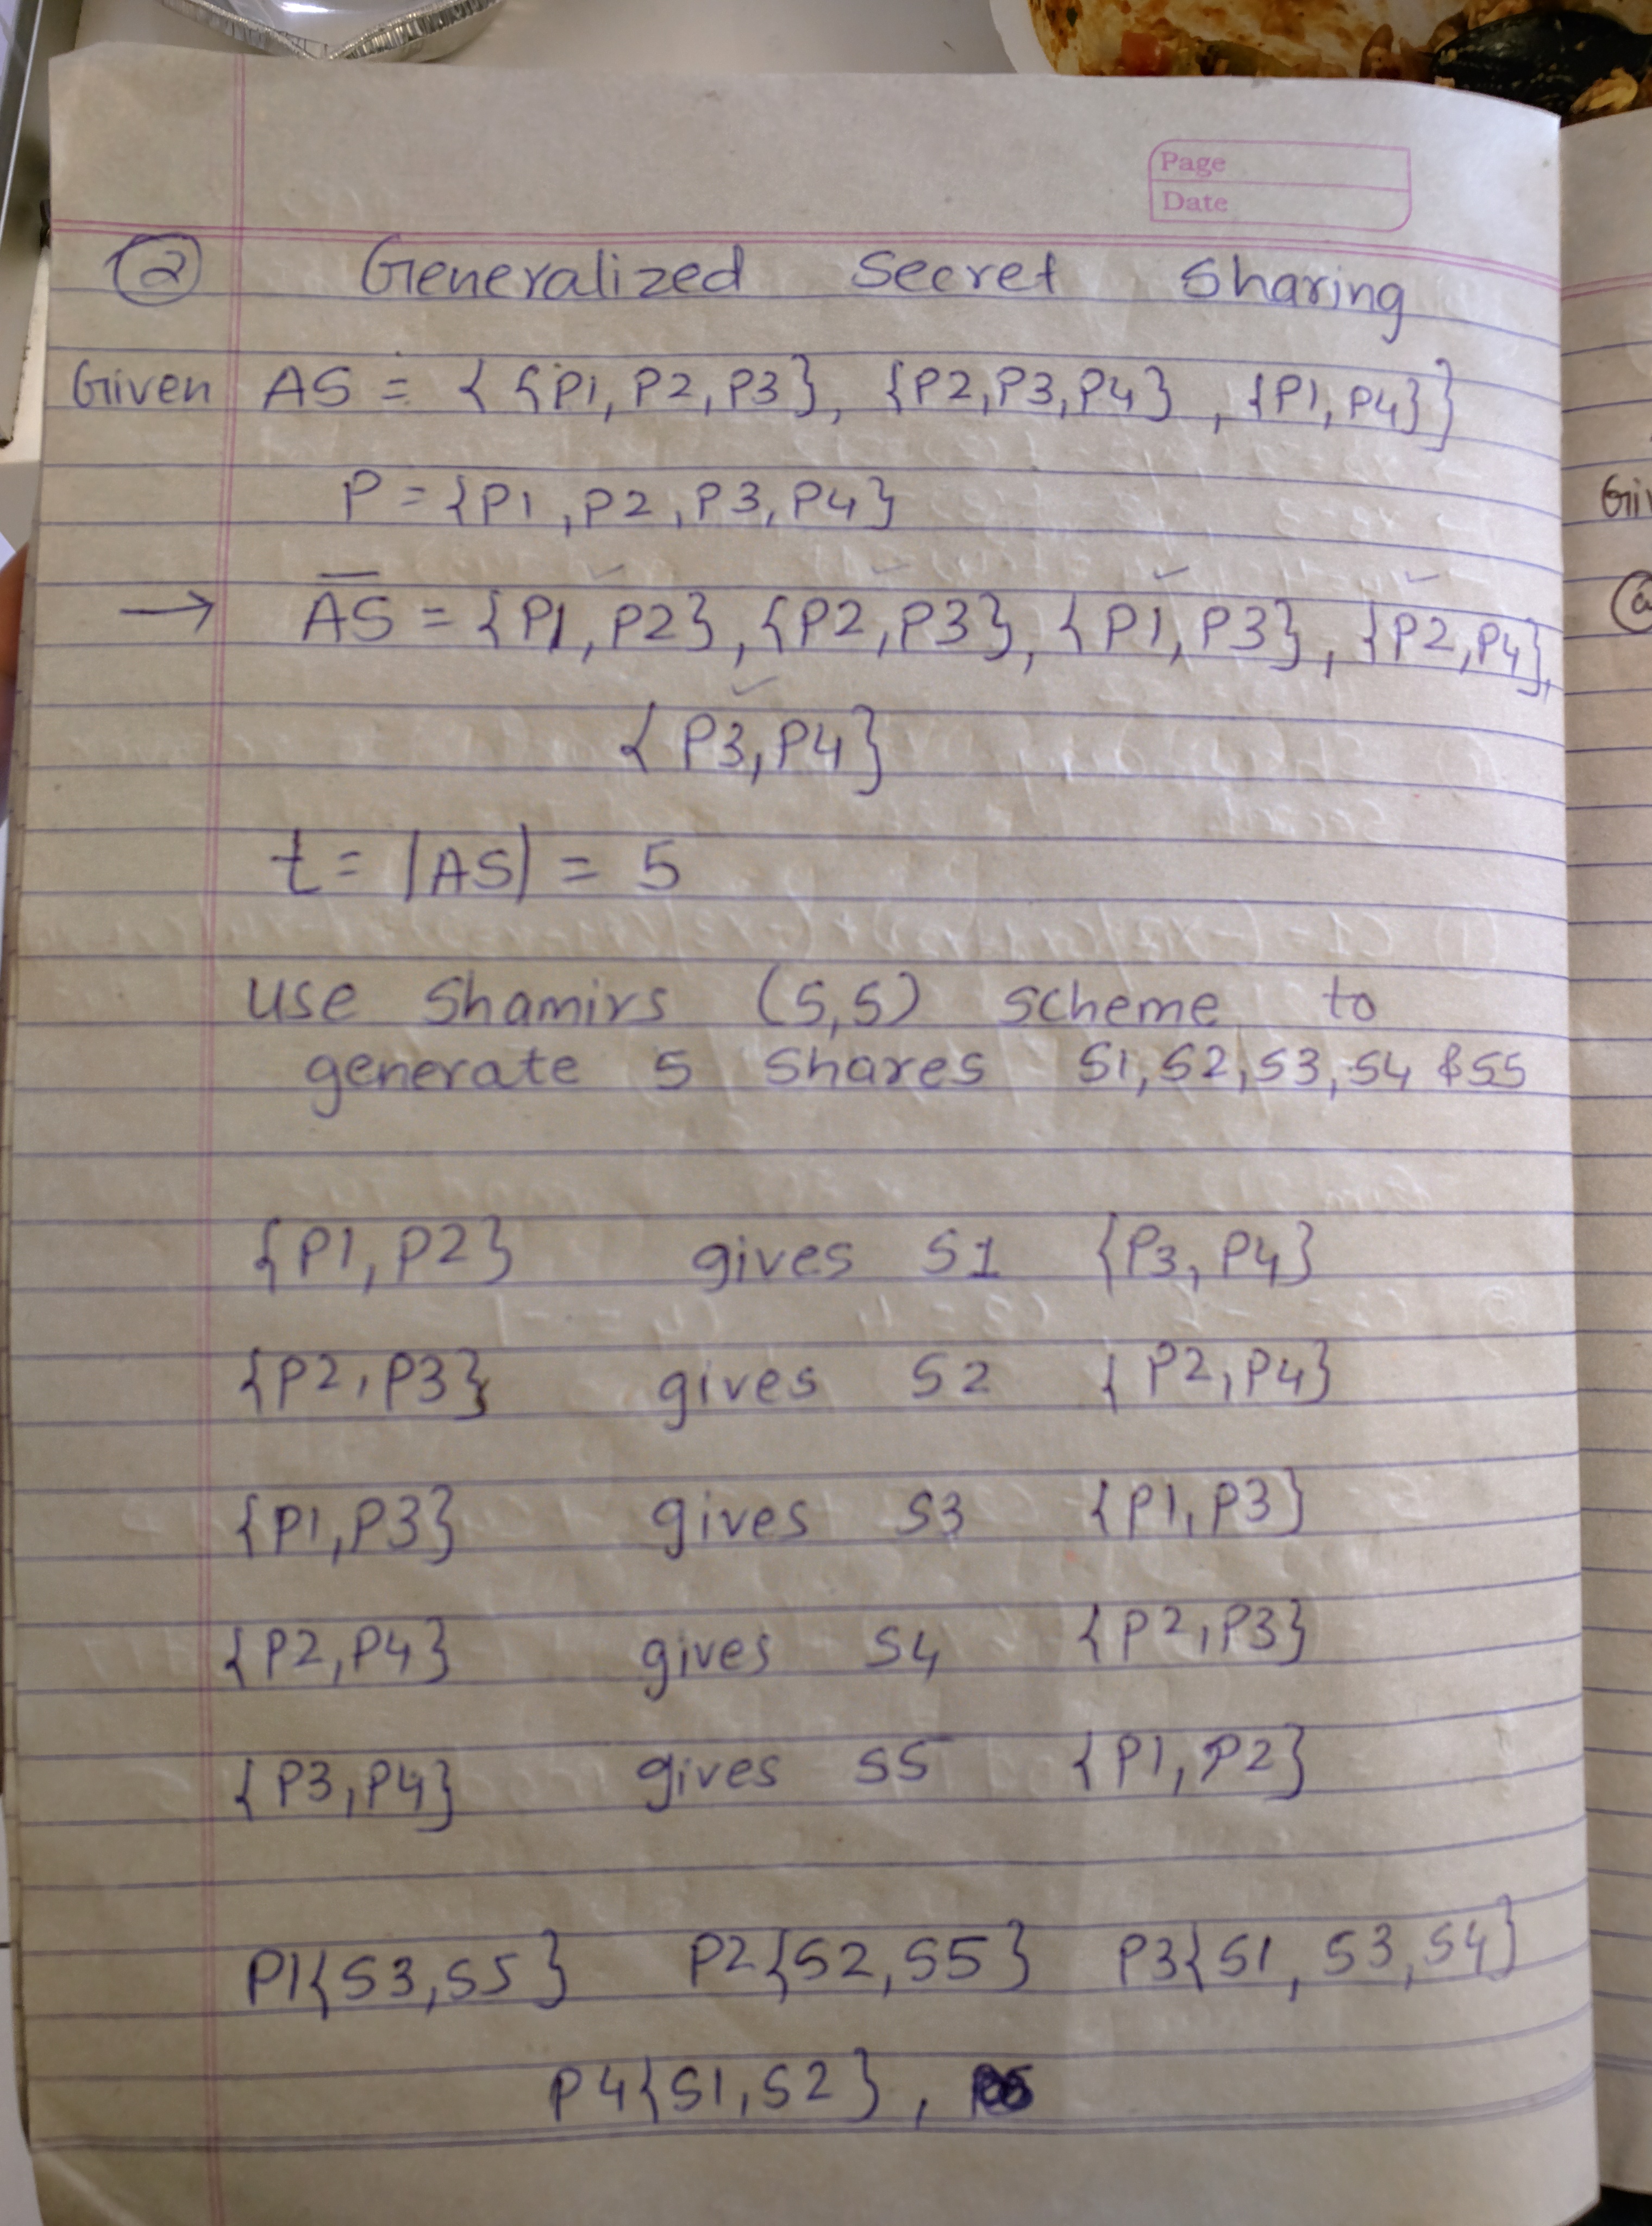 Page
Date
② Generalized Secret Sharing
Given AS = {{P1, P2, P3}, {P2, P3, P4}, {P1, P4}}
P = {P1, P2, P3, P4}
→ A̅S̅ = {P1, P2}, {P2, P3}, {P1, P3}, {P2, P4},
{P3, P4}
t = |AS| = 5
Use Shamirs (5,5) scheme to
generate 5 shares S1, S2, S3, S4 & S5
{P1, P2} gives S1 {P3, P4}
{P2, P3} gives S2 {P2, P4}
{P1, P3} gives S3 {P1, P3}
{P2, P4} gives S4 {P2, P3}
{P3, P4} gives S5 {P1, P2}
P1{S3, S5} P2{S2, S5} P3{S1, S3, S4}
P4{S1, S2},